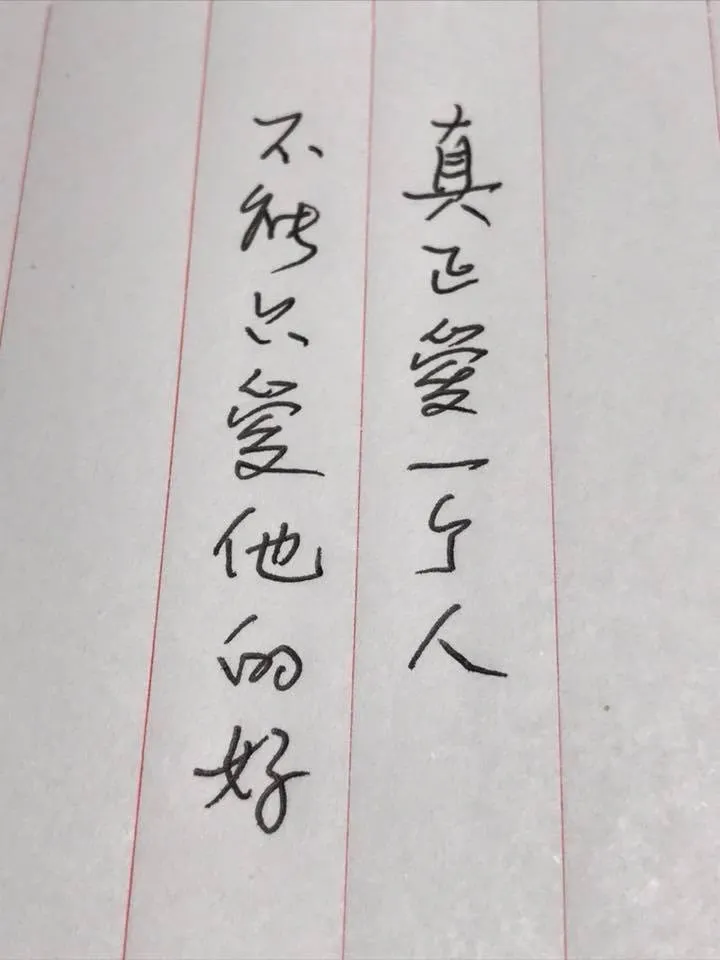 真正爱一个人
不能只爱他的好